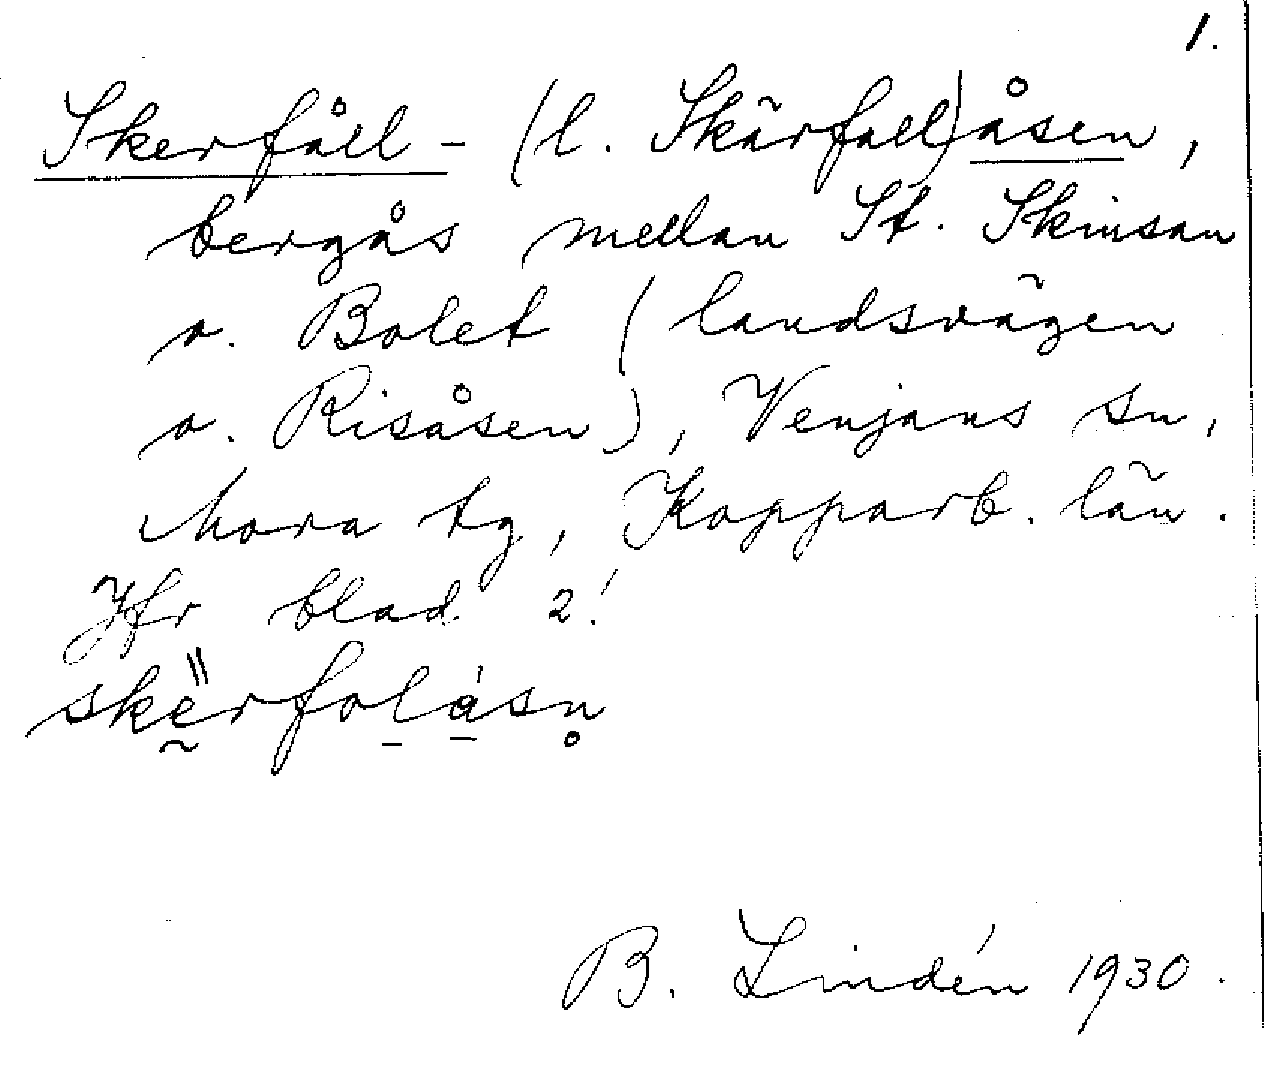 1.
Skerfåll- (l. Skärfall)åsen,
bergås mellan St. Skinsan
o. Bolet (landsvägen
o. Risåsen), Venjans sn,
Mora tg, Kopparb. län.
Jfr blad 2!
B. Lindén 1930.